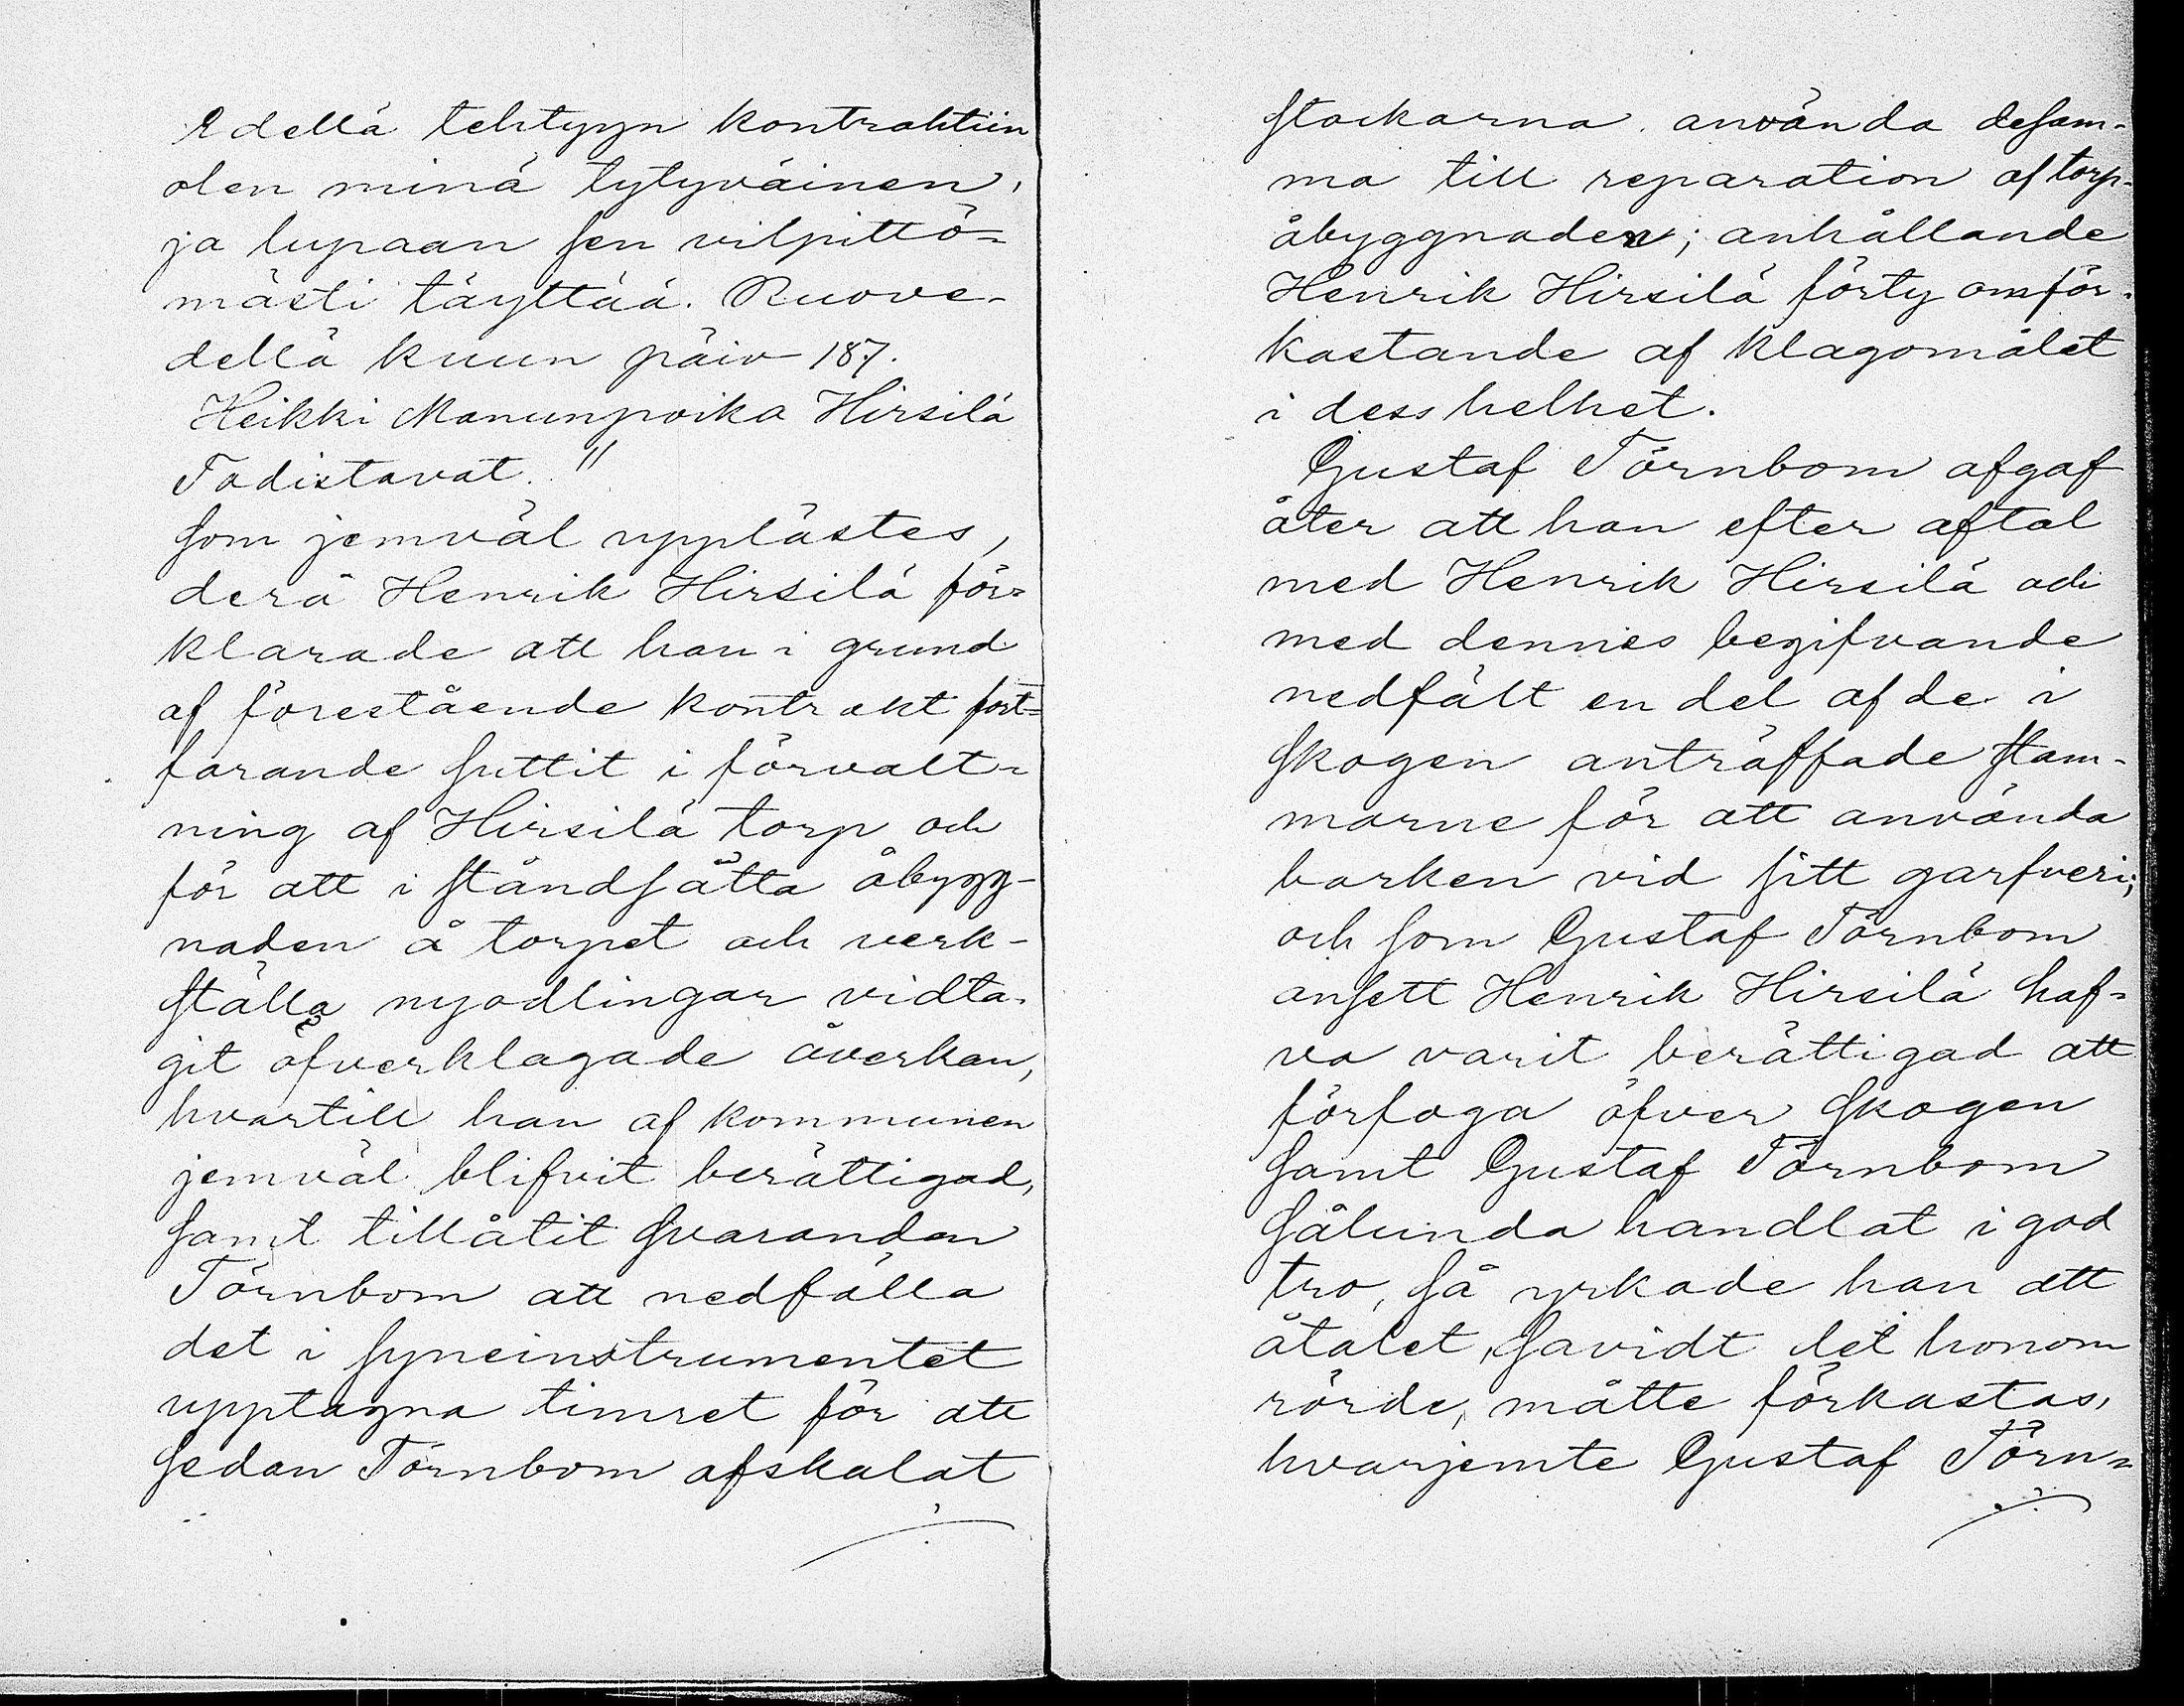 Edellä tehtyyn kontrahtiin
olen minä tytyväinen,
ja lupaan sen vilpittö=
mästi täyttää. Ruove-
dellä kuun päiv 187.
Heikki Manunpoika Hirsilä
Todistavat. "
som jemväl upplästes,
derå Henrik Hirsilä för=
klarade att han i grund
af förestående kontrakt fort=
farande suttit i förvalt-
ning af Hirsilä torp och
för att i ståndsätta åbygg-
naden å torpet och verk-
ställa nyodlingar vidta-
git öfverklagade åverkan,
hvartill han af kommunen
jemväl blifvit berättigad,
samt tillåtit svaranden
Törnbom att nedfälla
det i syneinstrumentet
upptagna timret för att
sedan Törnbom afskalat
stockarna använda desam-
ma till reparation af torp-
åbyggnaden; anhållande
Henrik Hirsilä förty om för-
kastande af klagomålet
i dess helhet.
Gustaf Törnbom afgaf
åter att han efter aftal
med Henrik Hirsilä och
med dennes begifvande
nedfält en del af de i
skogen anträffade stam-
marne för att använda
barken vid sitt garfveri;
och som Gustaf Törnbom
ansett Henrik Hirsilä haf-
va varit berättigad att
förfoga öfver skogen
samt Gustaf Törnbom
sålunda handlat i god
tro, så yrkade han att
åtalet, såvidt det honom
rörde, måtte förkastas,
hvarjemte Gustaf Törn=